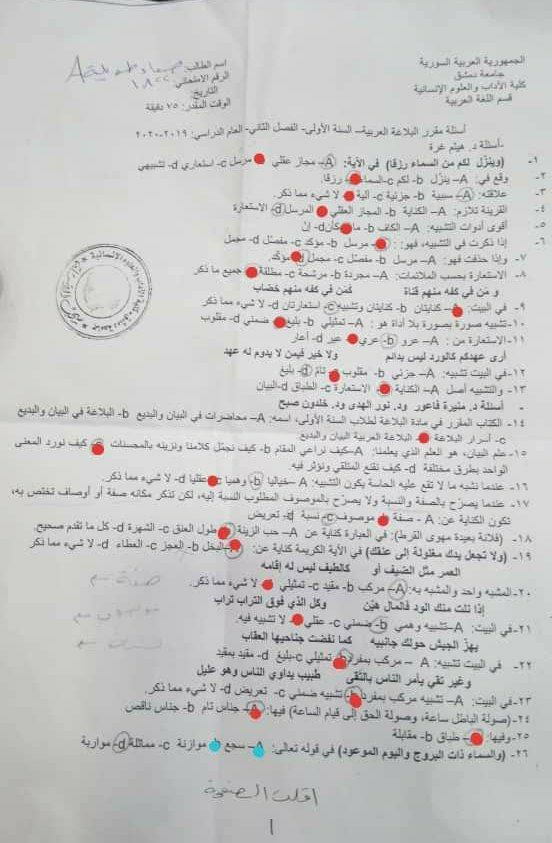 الجمهورية العربية السورية
جامعة دمشق
كلية الآداب والعلوم الإنسانية
قسم اللغة العربية
اسم الطالب:
الرقم الامتحاني: ١٨٢٢
التاريخ:
الوقت المقدر: ٧٥ دقيقة
أسئلة مقرر البلاغة العربية- السنة الأولى- الفصل الثاني- العام الدراسي: ٢٠١٩-٢٠٢٠
-أسئلة د. هيثم غرة
١- (وينزل لكم من السماء رزقا) في الآية: A- مجاز عقلي مرسل c- استعاري d- تشبيهي
٢- وقع في: A- ينزل b- لكم c- السماء رزقا.
٣- علاقته: A- سببية b- جزئية c- آلية لا شيء مما ذكر.
٤- القرينة تلازم: A- الكناية b- المجاز العقلي المرسل d- الاستعارة
٥- أقوى أدوات التشبيه: A- الكاف b- ما كأن d- إن
٦- إذا ذكرت في التشبيه، فهو: مرسل b- مؤكد c- مفصل d- مجمل
٧- وإذا حذفت فهو: A- مرسل b- مفصل c- مجمل مؤكد.
٨- الاستعارة بحسب الملائمات: A- مجردة b- مرشحة c- مطلقة جميع ما ذكر
و من في كفه منهم قناة كمن في كفه منهم خضاب
٩- في البيت: A- كنايتان b- كنايتان وتشبيه c- استعارتان d- لا شيء مما ذكر
١٠- تشبيه صورة بصورة بلا أداة هو: A- تمثيلي b- بليغ ضمني d- مقلوب
١١- الاستعارة من: A- عرو b- عري عير d- أعار
أرى عهدكم كالورد ليس بدائم ولا خير فيمن لا يدوم له عهد
١٢- في البيت تشبيه: A- جزئي b- مقلوب تام d- بليغ
١٣- والتشبيه أصل A- الكناية الاستعارة c- الطباق d- البيان
- أسئلة د. منيرة فاعور ود. نور الهدى ود. خلدون صبح
١٤- الكتاب المقرر في مادة البلاغة لطلاب السنة الأولى، اسمه: A- محاضرات في البيان والبديع b- البلاغة في البيان والبديع
c- أسرار البلاغة البلاغة العربية البيان والبديع.
١٥- علم البيان، هو العلم الذي يعلمنا: A- كيف نراعي المقام b- كيف نجمل كلامنا ونزينه بالمحسنات كيف نورد المعنى
الواحد بطرق مختلفة d- كيف نقنع المتلقي ونؤثر فيه.
١٦- عندما نشبه ما لا تقع عليه الحاسة يكون التشبيه: A- خياليا b- وهميا c- عقليا d- لا شيء مما ذكر.
١٧- عندما يصرّح بالصفة والنسبة ولا يصرّح بالموصوف المطلوب النسبة إليه، ولكن تذكر مكانه صفة أو أوصاف تختص به،
تكون الكناية عن: A- صفة موصوف c- نسبة d- تعريض
١٨- (فلانة بعيدة مهوى القرط): في العبارة كناية عن A- حب الزينة طول العنق c- الشهرة d- كل ما تقدم صحيح.
١٩- (ولا تجعل يدك مغلولة إلى عنقك) في الآية الكريمة كناية عن: البخل b- العجز c- العطاء d- لا شيء مما ذكر
العمر مثل الضيف أو كالطيف ليس له إقامه
٢٠- المشبه واحد والمشبه به: A- مركب b- مقيد c- تمثيلي لا شيء مما ذكر.
إذا نلت منك الود فالمال هيّن وكل الذي فوق التراب تراب
٢١- في البيت: A- تشبيه وهمي b- ضمني c- عقلي لا تشبيه فيه.
يهزّ الجيش حولك جانبيه كما نفضت جناحيها العقاب
٢٢- في البيت تشبيه: A- مركب بمفرد تمثيلي c- بليغ d- مقيد بمقيد
وغير تقي يأمر الناس بالتقى طبيب يداوي الناس وهو عليل
٢٣- في البيت: A- تشبيه مركب بمفرد تشبيه ضمني c- تعريض d- لا شيء مما ذكر.
٢٤- (صولة الباطل ساعة، وصولة الحق إلى قيام الساعة) فيها: A- جناس تام b- جناس ناقص
٢٥- وفيها: طباق b- مقابلة
٢٦- (والسماء ذات البروج واليوم الموعود) في قوله تعالى: A- سجع b- موازنة c- مماثلة d- مواربة
اقلب الصفحة